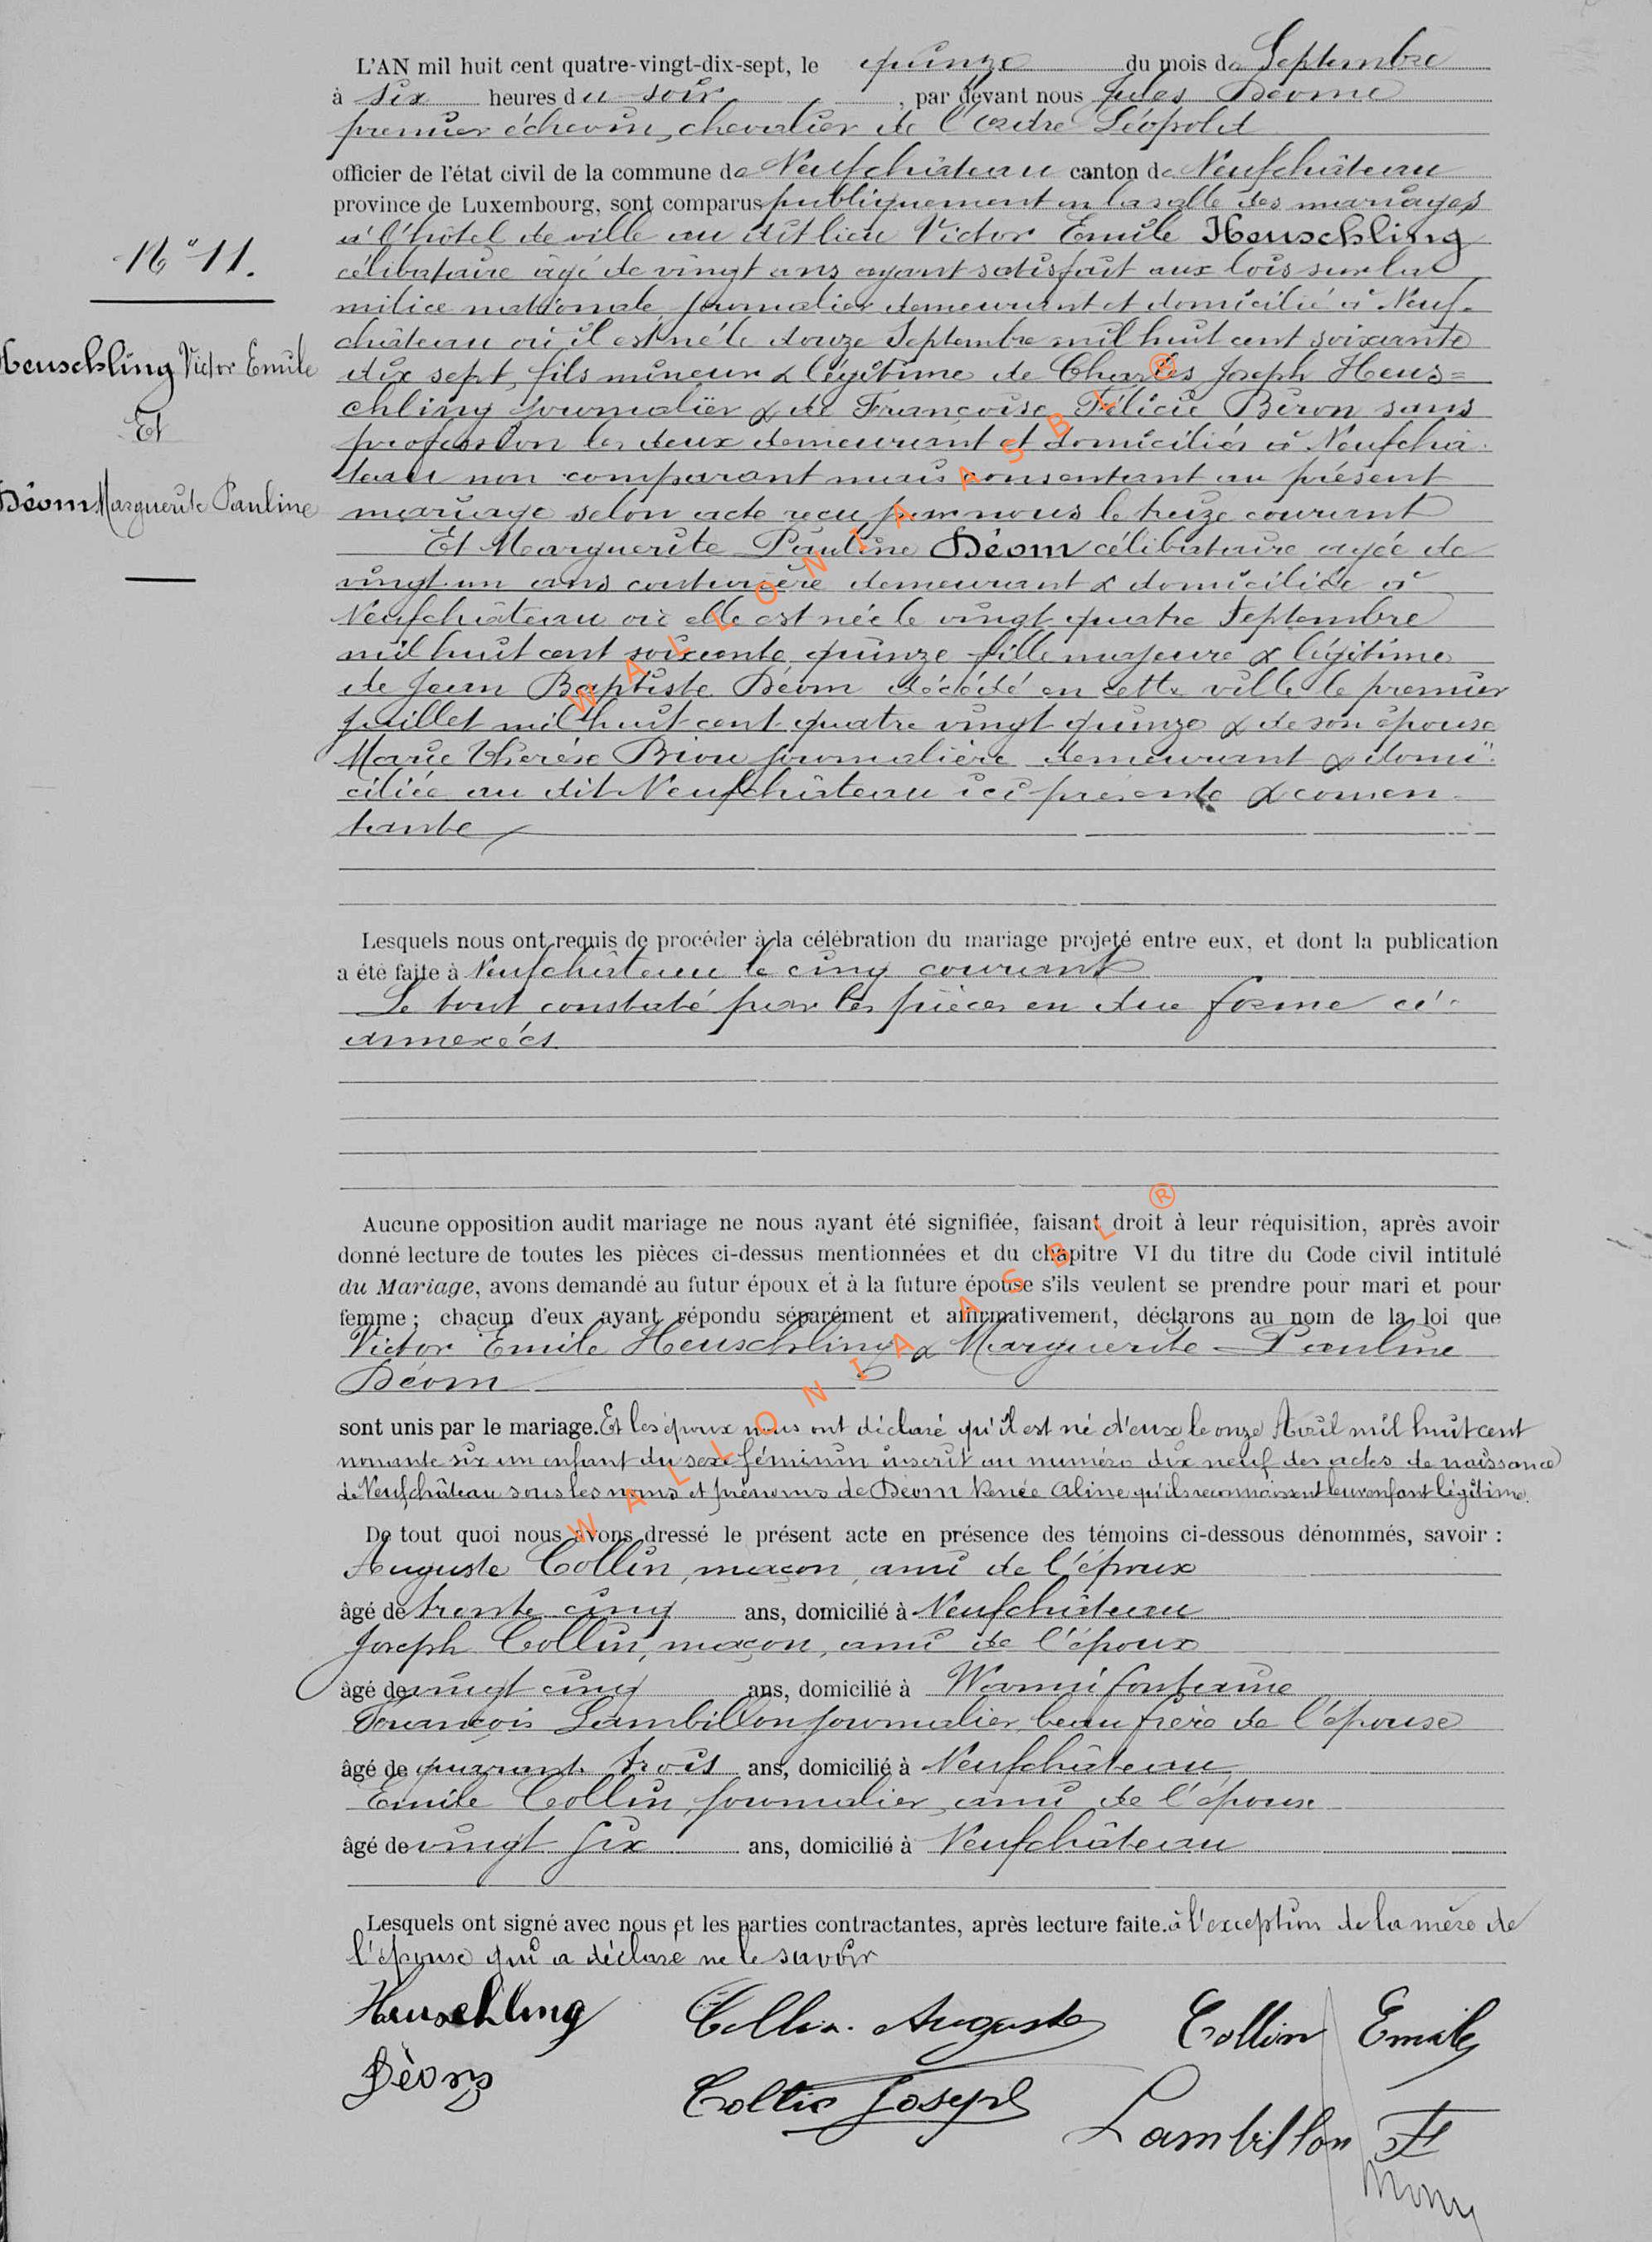 L'AN mil huit cent quatre-vingt-dix-sept, le quinze du mois de Septembre
à six heures du soir, par devant nous Jules Déome
premier échevin, chevalier de l'ordre Léopold
officier de l'état civil de la commune de Neufchâteau canton de Neufchâteau
province de Luxembourg, sont comparus publiquement en la salle des mariages
à l'hôtel de ville au dit lieu Victor Emile Heuschling
célibataire âgé de vingt ans ayant satisfait aux lois sur la
milice nationale, journalier demeurant et domicilié à Neuf-
château où il est né le douze Septembre mil huit cent soixante
dix sept, fils mineur & légitime de Charles Joseph Heus=
chling journalier & de Françoise Félicie Biron sans
profession les deux demeurant et domiciliés à Neufchâ-
teau non comparant mais consentant au présent
mariage selon acte reçu par nous le treize courant
Et Marguerite Pauline Déom célibataire agée de
vingt un ans couturière demeurant & domiciliée à
Neufchâteau où elle est née le vingt quatre Septembre
mil huit cent soixante quinze fille majeure & légitime
de Jean Baptiste Déom décédé en cette ville le premier
Juillet mil huit cent quatre vingt quinze & de son épouse
Marie Thérèse Briou journalière demeurant & domi-
ciliée au dit Neufchâteau ici présente & consen-
tante
N° 11.
Heuschling Victor Emile
Et
Déom Marguerite Pauline
Lesquels nous ont requis de procéder à la célébration du mariage projeté entre eux, et dont la publication
a été faite à Neufchâteau le cinq courant
Le tout constaté par les pièces en due forme ci-
annexées.
Aucune opposition audit mariage ne nous ayant été signifiée, faisant droit à leur réquisition, après avoir
donné lecture de toutes les pièces ci-dessus mentionnées et du chapitre VI du titre du Code civil intitulé
du Mariage, avons demandé au futur époux et à la future épouse s'ils veulent se prendre pour mari et pour
femme ; chacun d'eux ayant répondu séparément et affirmativement, déclarons au nom de la loi que
Victor Emile Heuschling & Marguerite Pauline
Déom
sont unis par le mariage. Et les époux nous ont déclaré qu'il est né d'eux le onze Avril mil huit cent
nonante six un enfant du sexe féminin inscrit au numéro dix neuf des actes de naissance
de Neufchâteau sous les noms et prénoms de Déom Renée Aline qu'ils reconnaissent leur enfant légitime.
De tout quoi nous avons dressé le présent acte en présence des témoins ci-dessous dénommés, savoir :
Auguste Collin, maçon, ami de l'époux
âgé de trente cinq ans, domicilié à Neufchâteau
Joseph Collin, maçon, ami de l'époux
âgé de vingt cinq ans, domicilié à Warmifontaine
François Lambillon journalier, beau frère de l'épouse
âgé de quarante trois ans, domicilié à Neufchâteau
Emile Collin, journalier, ami de l'épouse
âgé de vingt six ans, domicilié à Neufchâteau
Lesquels ont signé avec nous et les parties contractantes, après lecture faite. à l'exception de la mère de
l'épouse qui a déclaré ne le savoir
Heuschling Collin. Auguste Collin Emile
Dèom Collin Joseph
Lambillon F
WALLONIA ASBL ®
WALLONIA ASBL ®